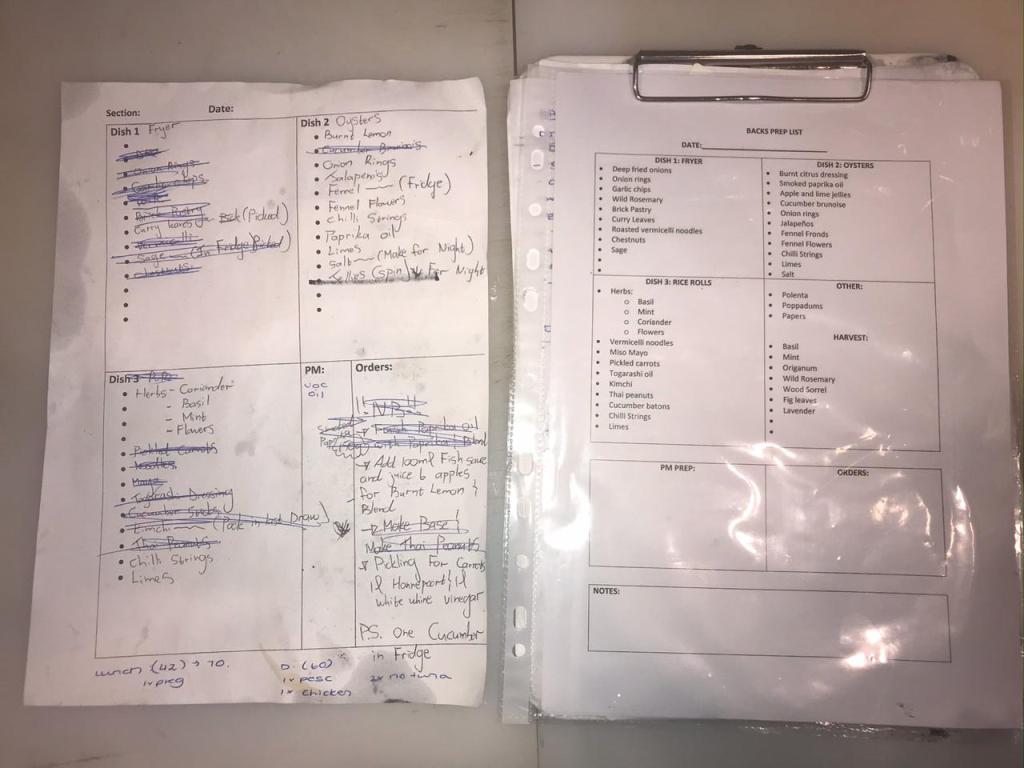 Section: Date:
Dish 1 Fryer
Onion Rings
Brick Pastry
Curry leaves (Picked)
Vermicelli
Sage (In Fridge) Picked
Chestnuts
Dish 2 Oysters
Burnt Lemon
Cucumber Brunois
Onion Rings
Jalapenis
Fennel (Fridge)
Fennel Flowers
Chilli Strings
Paprika oil
Limes
Salt (Make for Night)
Jellies (spin) For Night
Dish 3
Herbs - Coriander
- Basil
- Mint
- Flavers
Pickled Carrots
Noodles
Togarashi Dressing
Cucumber Sticks
Kimchi (Pack in last Draw)
Thai Peanuts
Chilli Strings
Limes
PM:
voc
oil
Orders:
N.B.
Finish Paprika Oil
Add 100ml Fish sauce
and juice 6 apples
for Burnt Lemon &
Blend
Make Base!
Make Thai Peanuts
Pickling For Carrots
white whine vinegar
P.S. One Cucumber
in Fridge
Lunch (42) → 70.
1x preg
D. (60)
1x pesc
1x chicken
2x no tuna
BACKS PREP LIST
DATE:
DISH 1: FRYER
Deep fried onions
Onion rings
Garlic chips
Wild Rosemary
Brick Pastry
Curry Leaves
Roasted vermicelli noodles
Chestnuts
Sage
DISH 2: OYSTERS
Burnt citrus dressing
Smoked paprika oil
Apple and lime jellies
Cucumber brunoise
Onion rings
Jalapeños
Fennel Fronds
Fennel Flowers
Chilli Strings
Limes
Salt
DISH 3: RICE ROLLS
Herbs:
Basil
Mint
Coriander
Flowers
Vermicelli noodles
Miso Mayo
Pickled carrots
Togarashi oil
Kimchi
Thai peanuts
Cucumber batons
Chilli Strings
Limes
OTHER:
Polenta
Poppadums
Papers
HARVEST:
Basil
Mint
Origanum
Wild Rosemary
Wood Sorrel
Fig leaves
Lavender
PM PREP:
ORDERS:
NOTES: